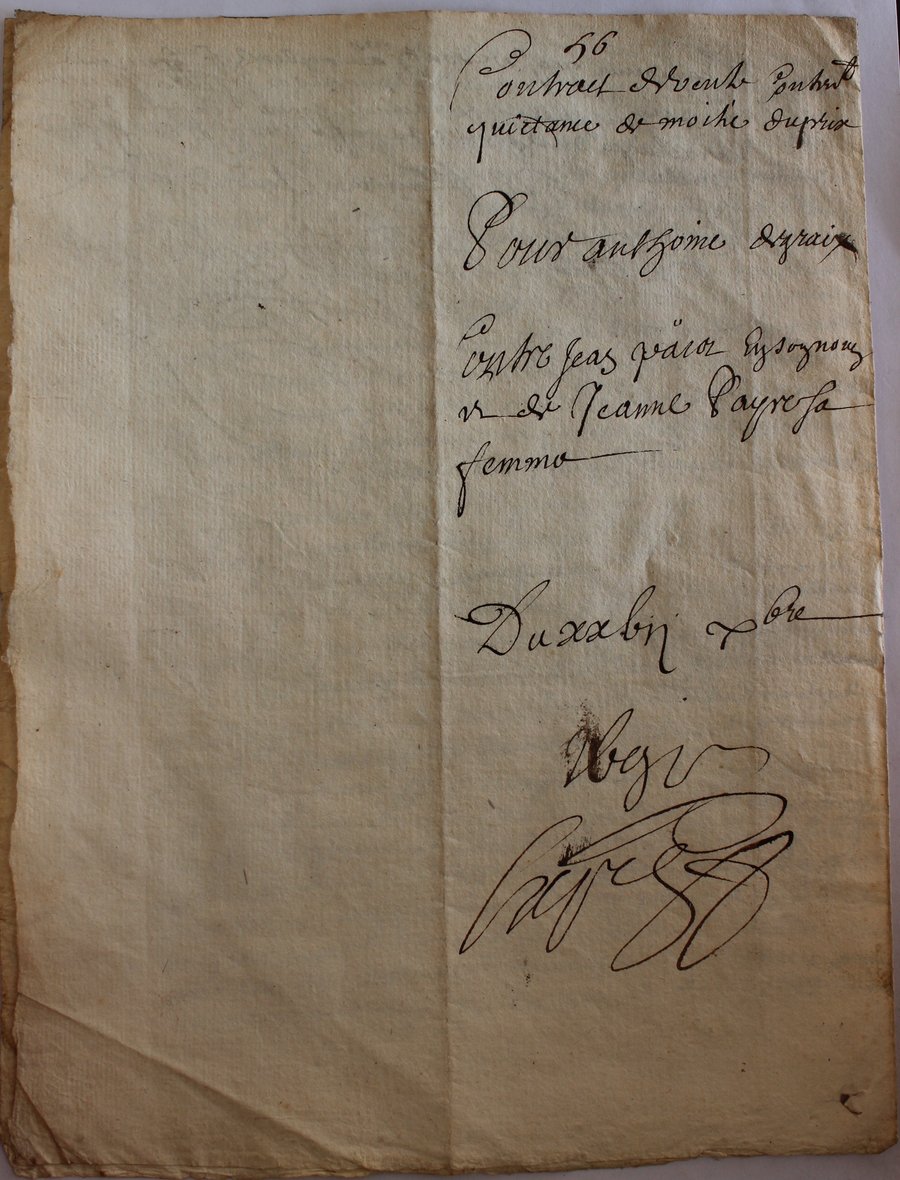 56
Contract de vente Conten.t
quictance de moitié du prix
Pour anthoine degraix
Contre Jean
et de Jeanne Payre sa
femme
Du xxbij xbre